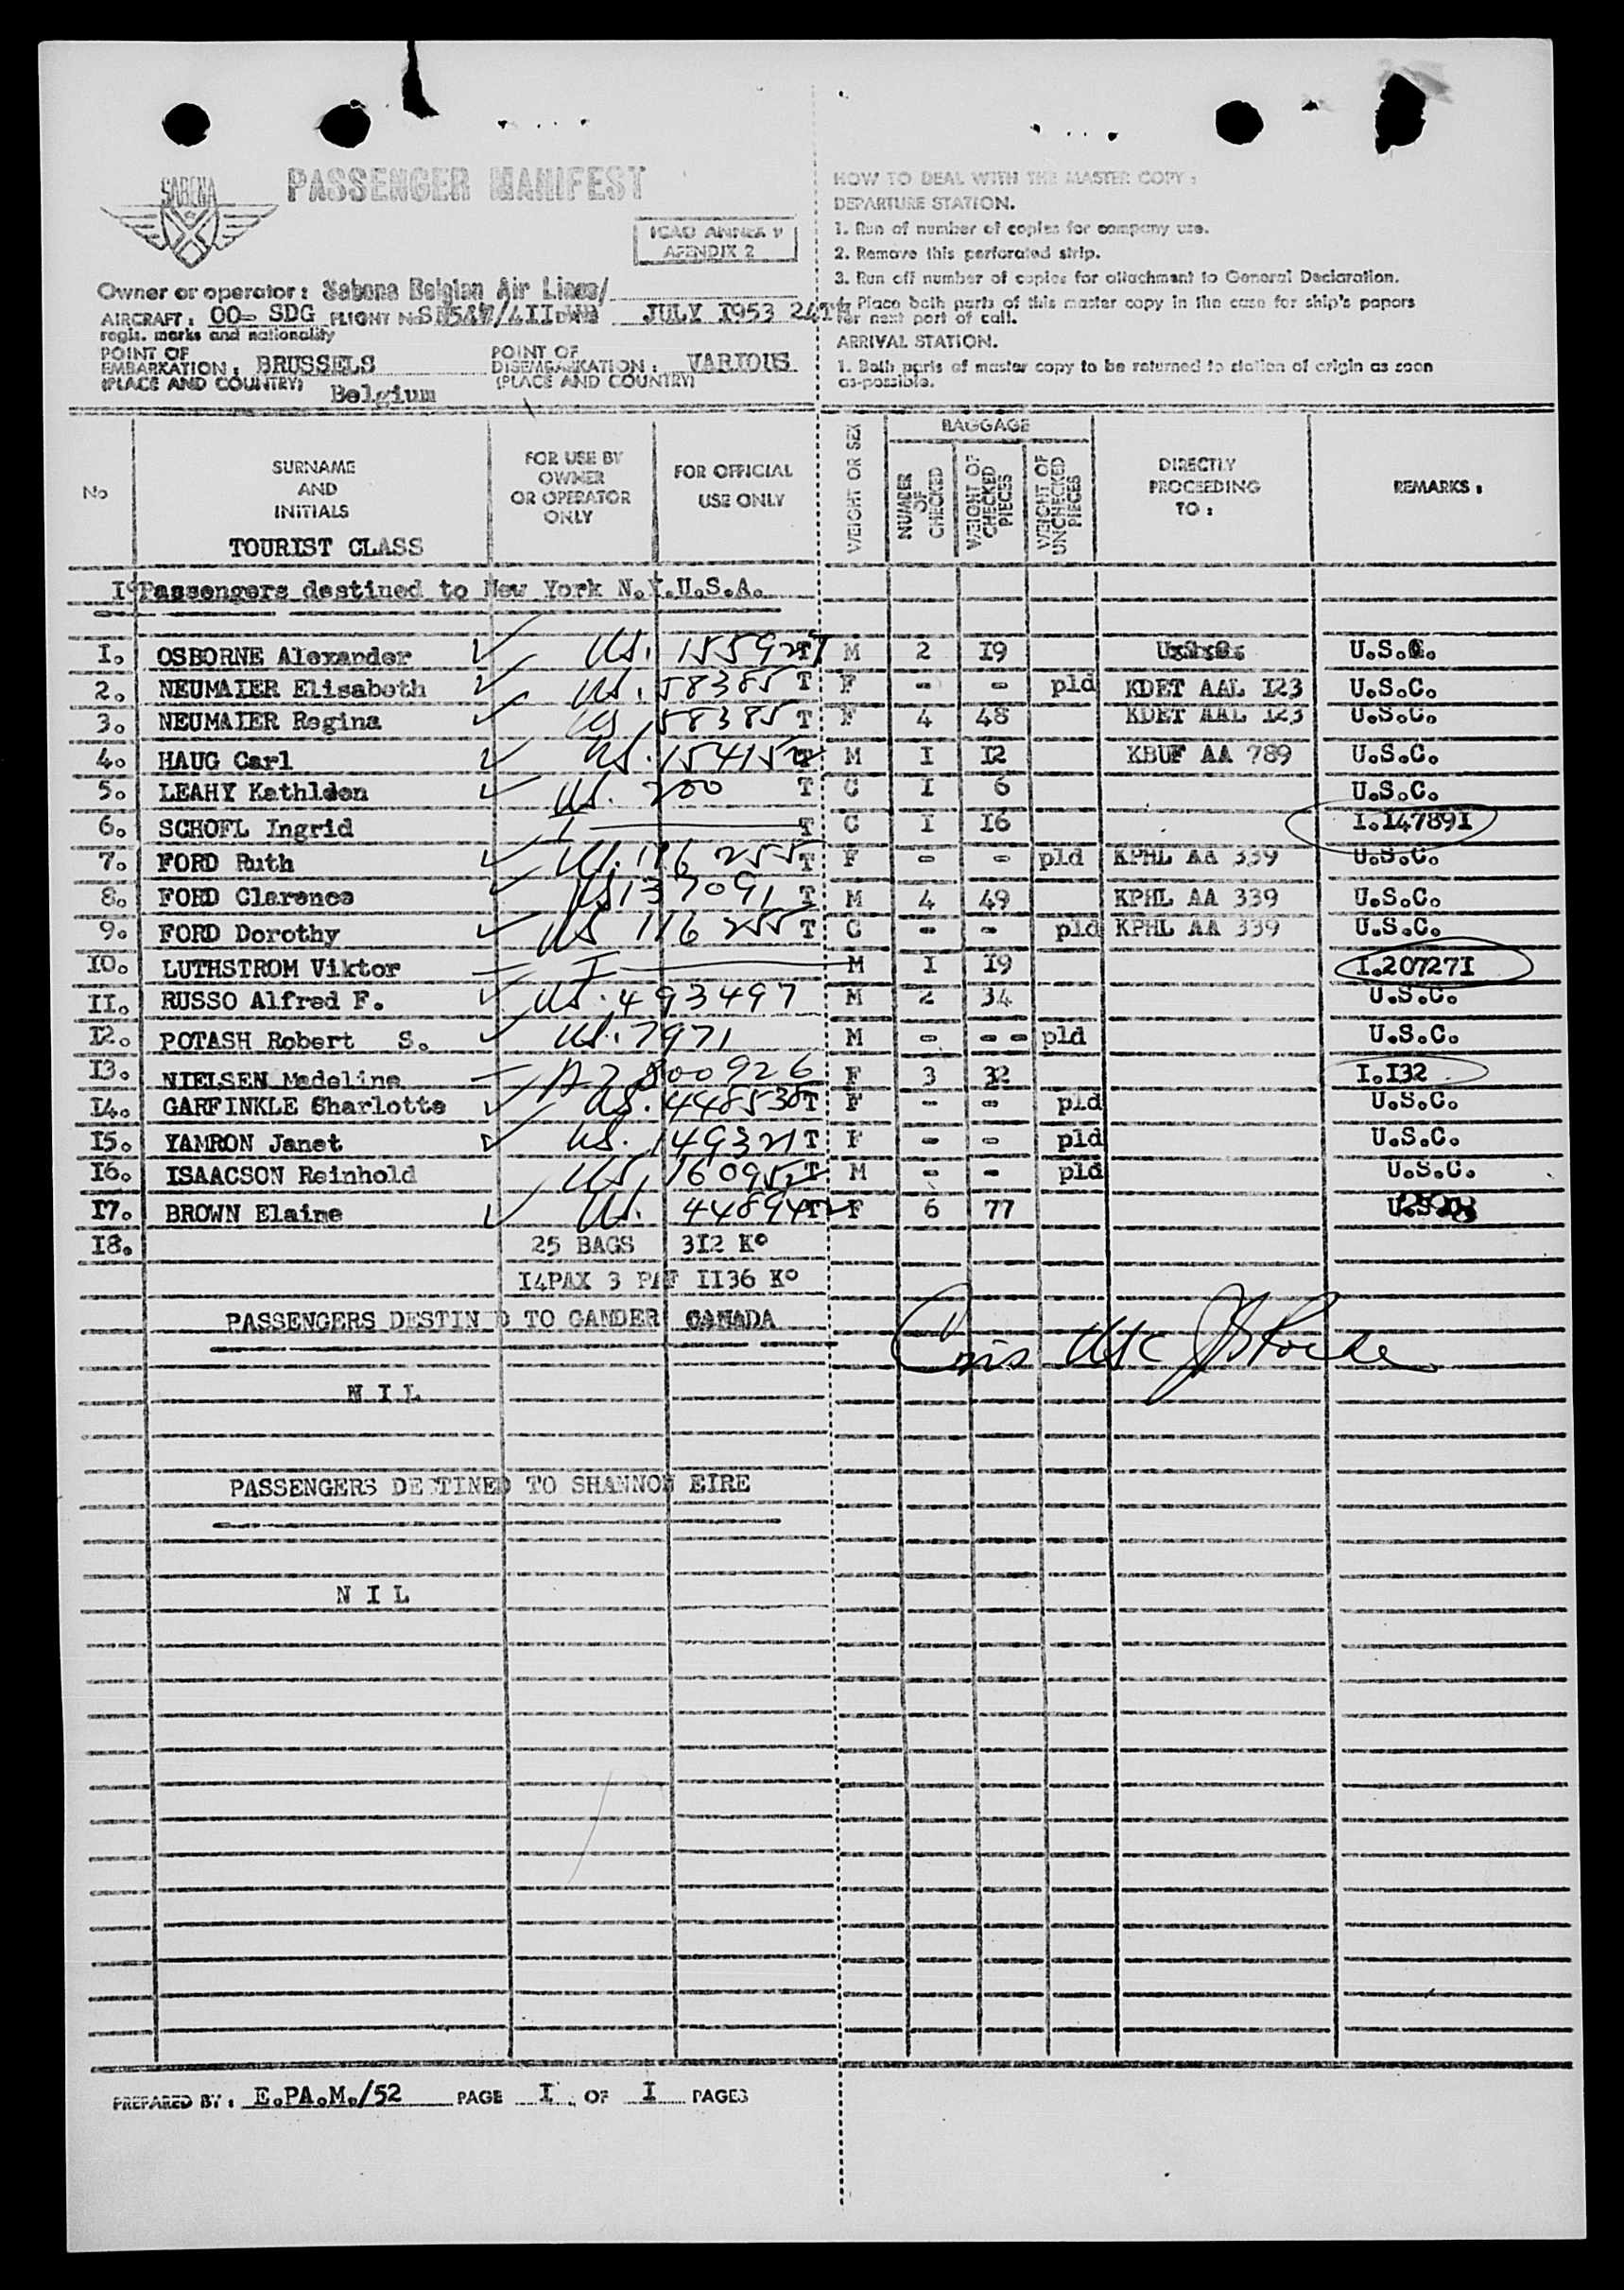 SABENA
PASSENGER MANIFEST
ICAO ANNEX 9
APENDIX 2
Owner or operator: Sabena Belgian Air Lines/
AIRCRAFT: OO- SDG FLIGHT No JULY I953 24TH
regis. marks and nationality
POINT OF EMBARKATION: BRUSSELS
(PLACE AND COUNTRY) Belgium
POINT OF DISEMBARKATION: VARIOUS
(PLACE AND COUNTRY)
HOW TO DEAL WITH THE MASTER COPY:
DEPARTURE STATION.
1. Run of number of copies for company use.
2. Remove this perforated strip.
3. Run off number of copies for attachment to General Declaration.
4. Place both parts of this master copy in the case for ship's papers
for next port of call.
ARRIVAL STATION.
1. Both parts of master copy to be returned to station of origin as soon
as-possible.
No
SURNAME AND INITIALS
TOURIST CLASS
FOR USE BY OWNER OR OPERATOR ONLY
FOR OFFICIAL USE ONLY
WEIGHT OR SEX
BAGGAGE
NUMBER OF CHECKED
WEIGHT OF CHECKED PIECES
WEIGHT OF UNCHECKED PIECES
DIRECTLY PROCEEDING TO:
REMARKS:
I° Passengers destined to New York N.Y.U.S.A.
I. OSBORNE Alexander US. T M 2 I9 U.S.C.
2. NEUMAIER Elisabeth US. 58385 T F - - pld KDET AAL I23 U.S.C.
3. NEUMAIER Regina US 58385 T F 4 48 KDET AAL I23 U.S.C.
4. HAUG Carl US. 154152 M I I2 KBUF AA 789 U.S.C.
5. LEAHY Kathleen US. 200 T C I 6 U.S.C.
6. SCHOFL Ingrid I T C I I6 I.I4789I
7. FORD Ruth US. 116255 T F - - pld KPHL AA 339 U.S.C.
8. FORD Clarence US 137091 T M 4 49 KPHL AA 339 U.S.C.
9. FORD Dorothy US 116255 T C - - pld KPHL AA 339 U.S.C.
I0. LUTHSTROM Viktor I M I I9 I.20727I
II. RUSSO Alfred F. US. 493497 M 2 34 U.S.C.
I2. POTASH Robert S. US. 7971 M - - - pld U.S.C.
I3. NIELSEN Madeline A7800926 F 3 32 I.I32
I4. GARFINKLE Charlotte US. 448538 T F - - pld U.S.C.
I5. YAMRON Janet US. 149321 T F - - pld U.S.C.
I6. ISAACSON Reinhold US. 160952 T M - - pld U.S.C.
I7. BROWN Elaine US. 448942 T F 6 77
I8.
25 BAGS 3I2 K°
I4PAX 3 PAF II36 K°
PASSENGERS DESTINED TO GANDER CANADA
N I L
PASSENGERS DESTINED TO SHANNON EIRE
N I L
PREPARED BY: E.PA.M./52 PAGE I OF I PAGES